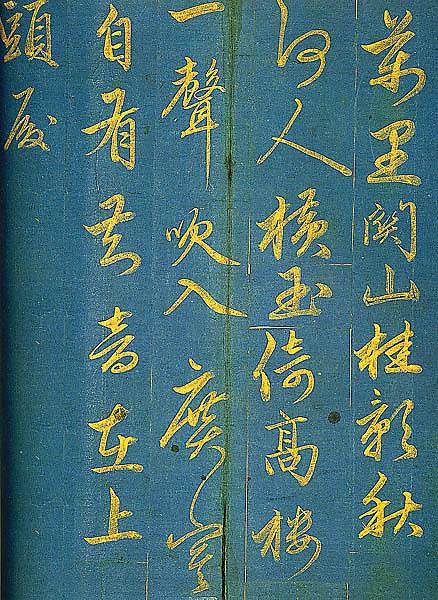 萬里関山桂影秋
何人橫玉倚高樓
一聲吹入廣寒
自有音在上
頭